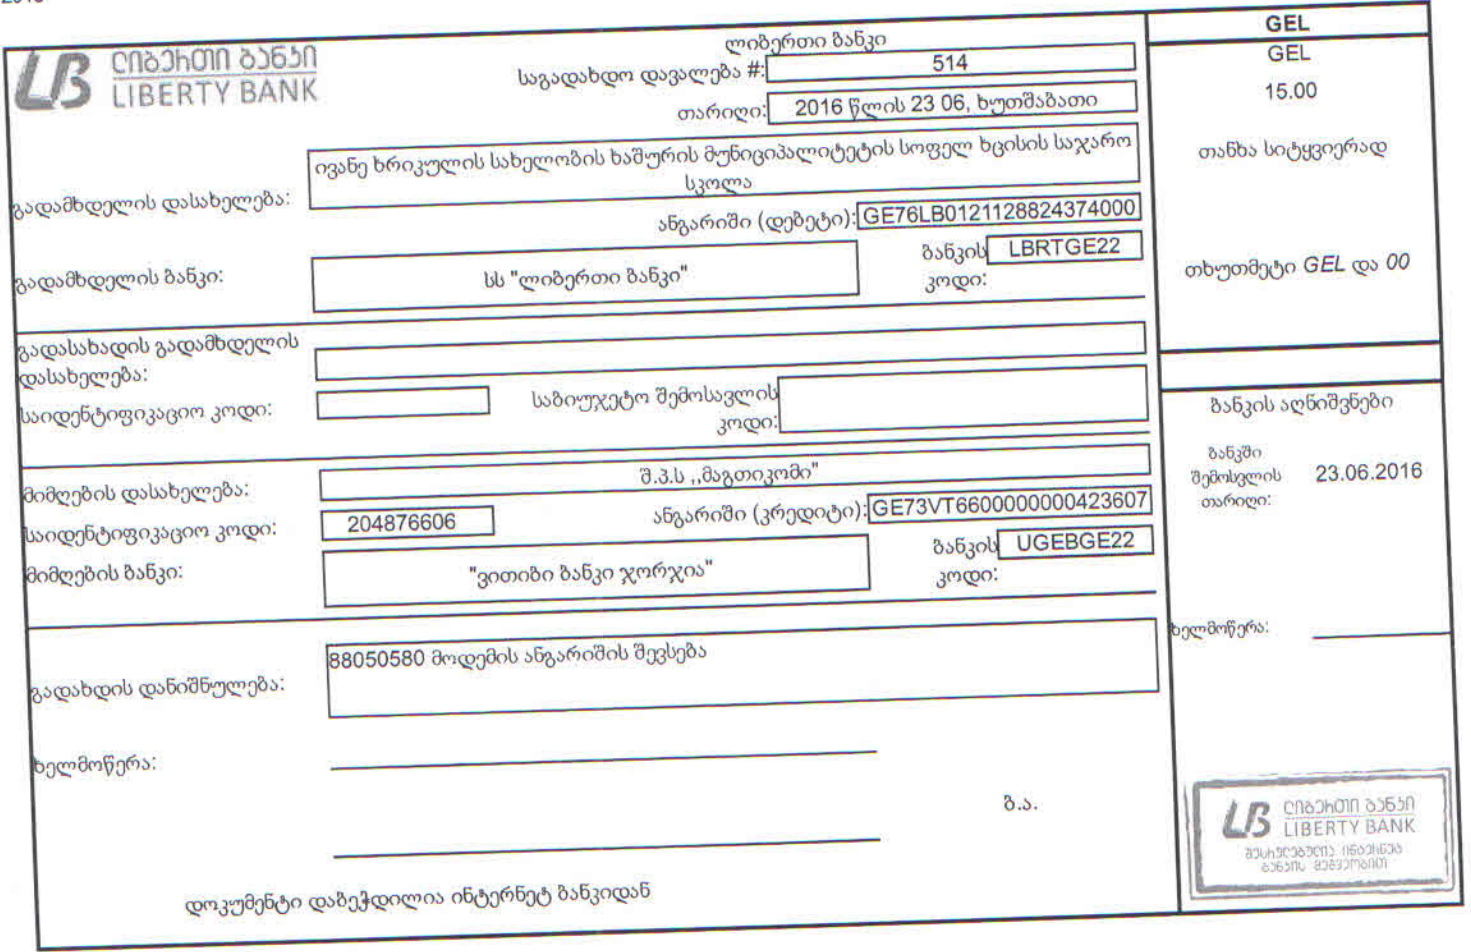 ლიბერთი ბანკი
LIBERTY BANK
ლიბერთი ბანკი
საგადახდო დავალება #: 514
თარიღი: 2016 წლის 23 06, ხუთშაბათი
გადამხდელის დასახელება: ივანე ხრიკულის სახელობის ხაშურის მუნიციპალიტეტის სოფელ ხცისის საჯარო
სკოლა
ანგარიში (დებეტი): GE76LB0121128824374000
გადამხდელის ბანკი: სს "ლიბერთი ბანკი"
ბანკის კოდი: LBRTGE22
გადასახადის გადამხდელის
დასახელება:
საიდენტიფიკაციო კოდი:
საბიუჯეტო შემოსავლის
კოდი:
მიმღების დასახელება: შ.პ.ს ,,მაგთიკომი"
საიდენტიფიკაციო კოდი: 204876606
ანგარიში (კრედიტი): GE73VT6600000000423607
მიმღების ბანკი: "ვითიბი ბანკი ჯორჯია"
ბანკის კოდი: UGEBGE22
გადახდის დანიშნულება: 88050580 მოდემის ანგარიშის შევსება
ხელმოწერა:
ბ.ა.
დოკუმენტი დაბეჭდილია ინტერნეტ ბანკიდან
GEL
GEL
15.00
თანხა სიტყვიერად
თხუთმეტი GEL და 00
ბანკის აღნიშვნები
ბანკში
შემოსვლის 23.06.2016
თარიღი:
ხელმოწერა:
ლიბერთი ბანკი
LIBERTY BANK
შესრულებულია ინტერნეტ
ბანკის მეშვეობით